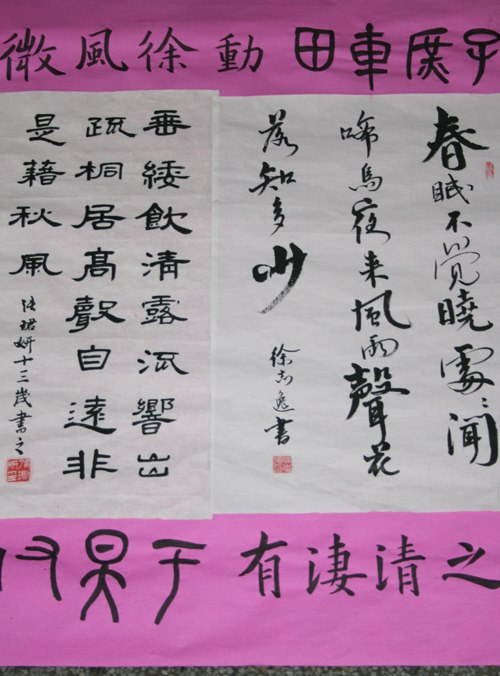 微風徐動 田車
春眠不觉曉處〻聞
啼鳥夜来風雨聲花
落知多少
徐志逸書
垂緌飲清露流響出
疏桐居高聲自遠非
是藉秋風
张珺妍十三歲書之
于 有淒清之